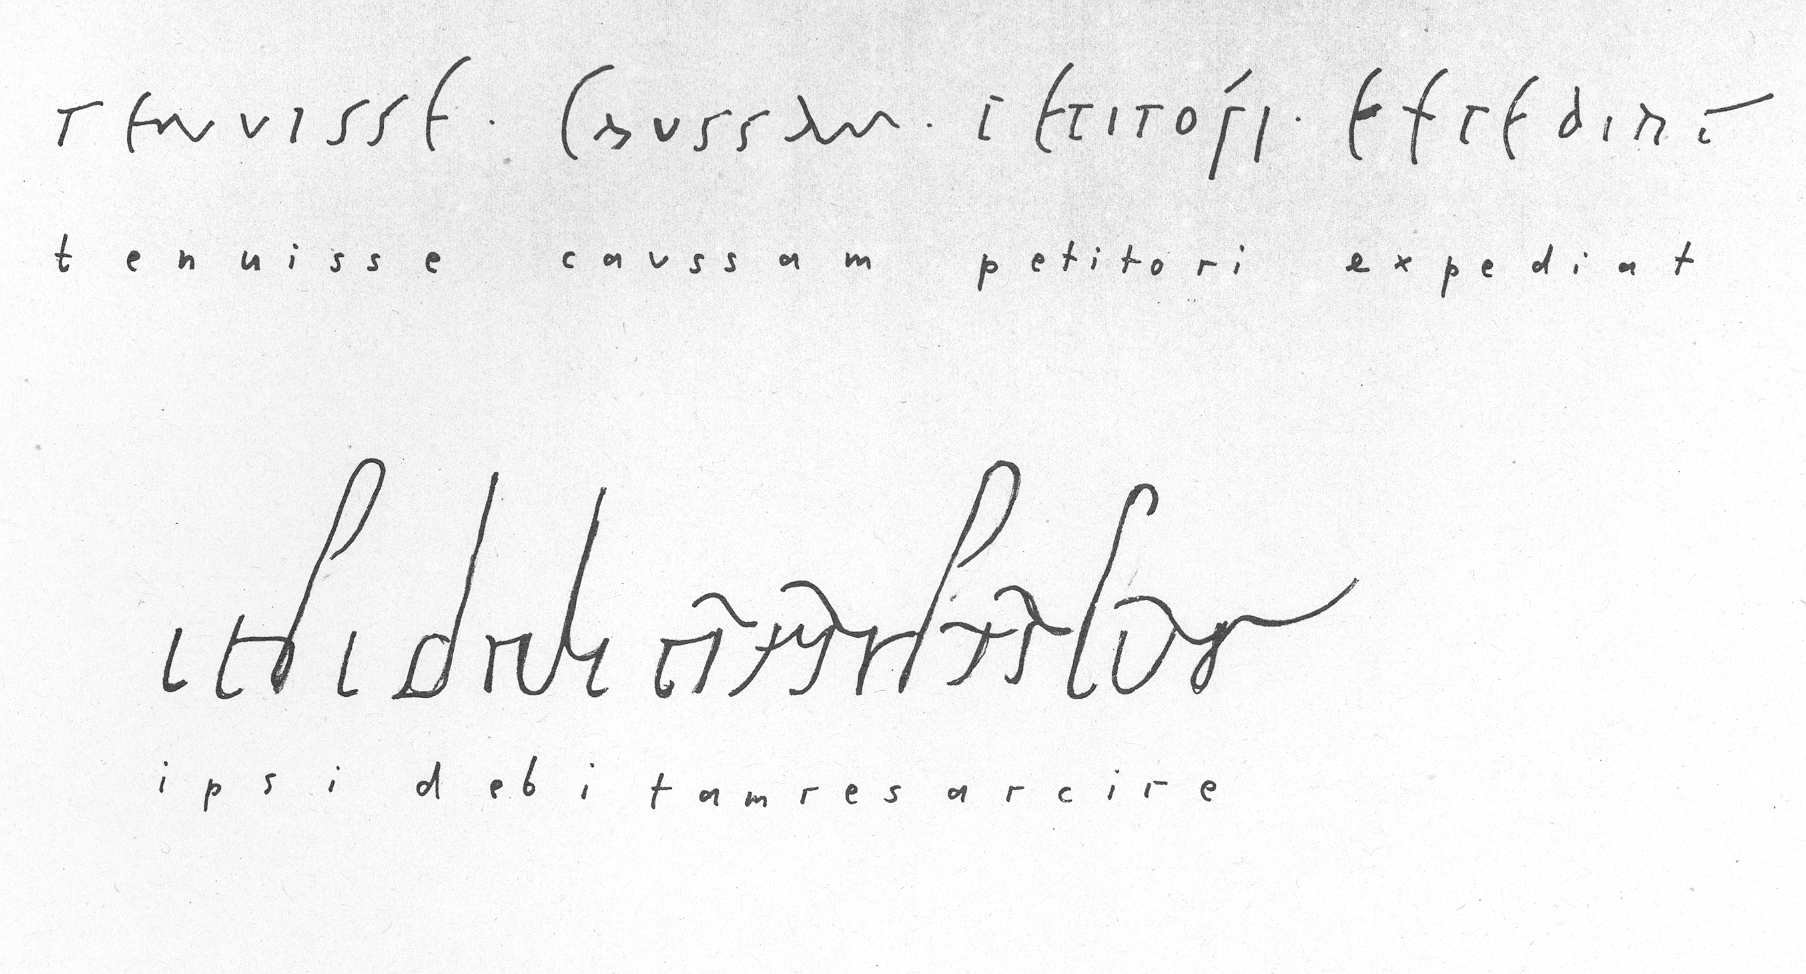 tenuisse · caussam · petitori · expediat
t e n u i s s e c a v s s a m p e t i t o r i e x p e d i a t
ipsi debi tamresarcire
i p s i d e b i t a m r e s a r c i r e